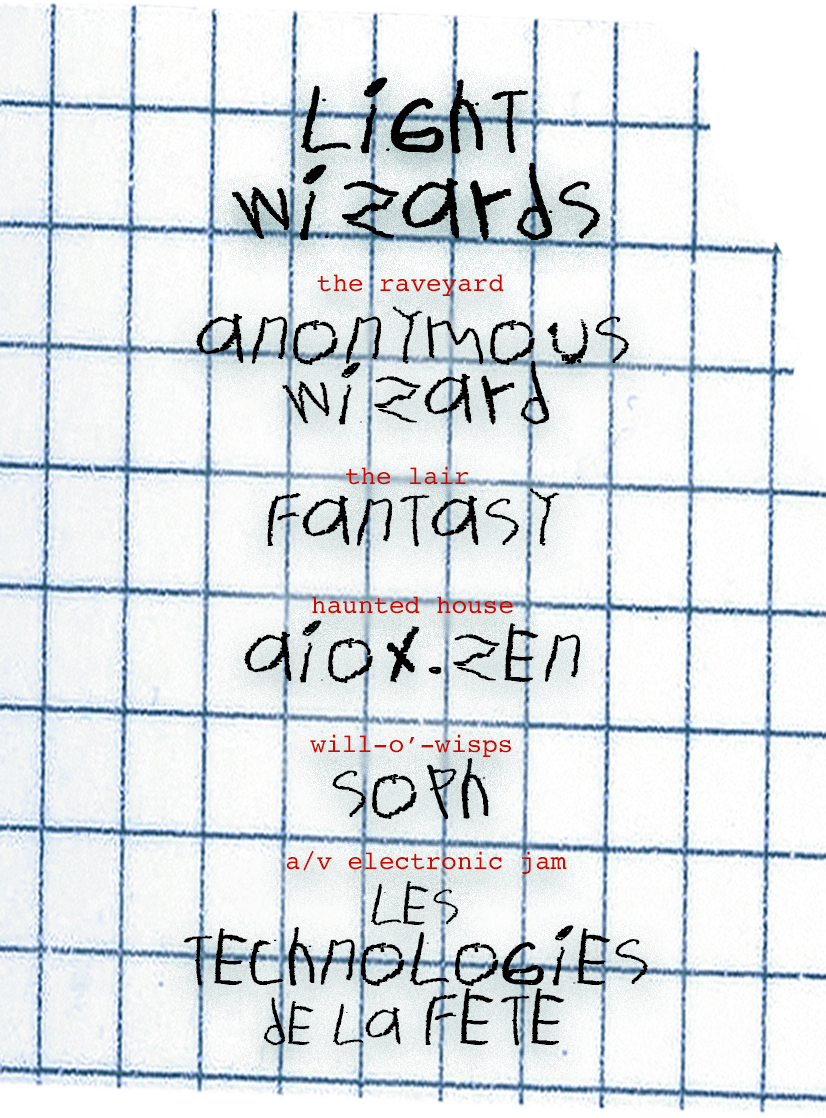 LiGhT
wizards
the raveyard
anonYmous
wizard
the lair
FanTasY
haunted house
aiox.zEn
will-o’-wisps
soPh
a/v electronic jam
LES
TEchnoLoGiES
dE La FETE